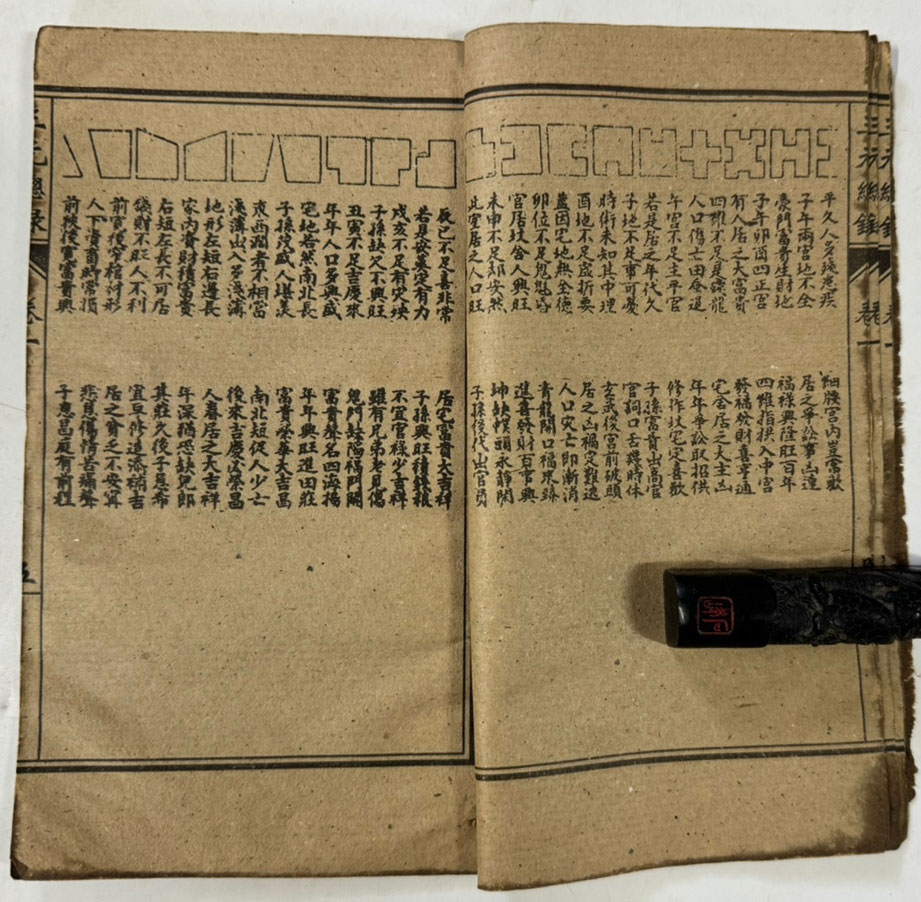 三元總錄
卷一
平久人多殘患疾
細腰宮內豈當歌
子午兩宮地不全
居之爭訟事凶逢
豪門富貴生財地
福祿興隆旺百年
子午卯酉四正宮
四維指拱入中宮
有人居之大富貴
發福發財喜亨通
四維不足是殘龍
宅舍居之大主凶
人口傷亡田倉退
年年爭訟取招供
午宮不足主平官
修作坟宅定喜歡
若是居之年代久
子孫富貴出高官
子地不足事可憂
官詞口舌幾時休
時術未知其中理
玄武後宮前破頭
酉地不足虛折要
居之凶禍定難逃
蓋因宅地無全德
人口灾亡即漸消
卯位不足鬼魁昏
青龍開口福來臻
宮居坟舍人興旺
進喜發財百事興
未申不足却安然
坤缺幞頭永靜閑
此宅居之人口旺
子孫後代出官員
辰巳不足喜非常
居宅富貴大吉祥
若是安墓突有力
子孫興旺積錢粮
戌亥不足有灾殃
不宜官祿少吉祥
子孫缺欠不興旺
雖有兄弟老見傷
丑寅不足吉慶來
鬼門缺陷福門開
年年人口多興盛
富貴聲名四海揚
宅地若然南北長
年年興旺進田莊
子孫茂盛人堪羡
富貴榮華大吉昌
東西濶者不相當
南北短促人少亡
淺薄出入多淺薄
後來吉慶必榮昌
地形左短右邊長
人眷居之大吉祥
家內資財積富貴
年深猶恐缺兒郎
右短左長不可居
其莊久後子息希
錢財不旺人不利
宜早修造添稍吉
前寬後窄棺材形
居之貧乏不安寘
人下資畜時常損
悲哀傷情苦痛聲
前狹後寬富貴興
子息昌庭有前程
三元總錄
卷一
五